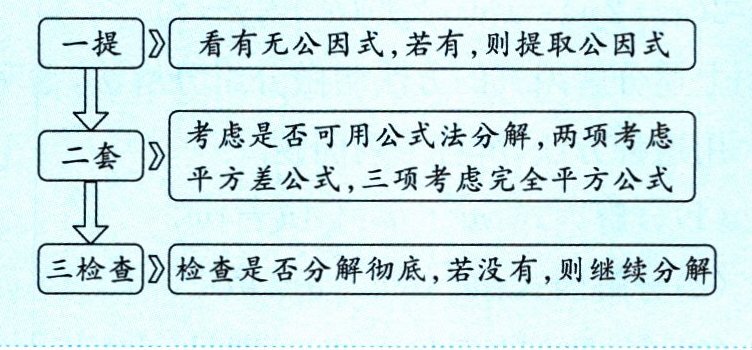 一提
看有无公因式,若有,则提取公因式
二套
考虑是否可用公式法分解,两项考虑
平方差公式,三项考虑完全平方公式
三检查
检查是否分解彻底,若没有,则继续分解